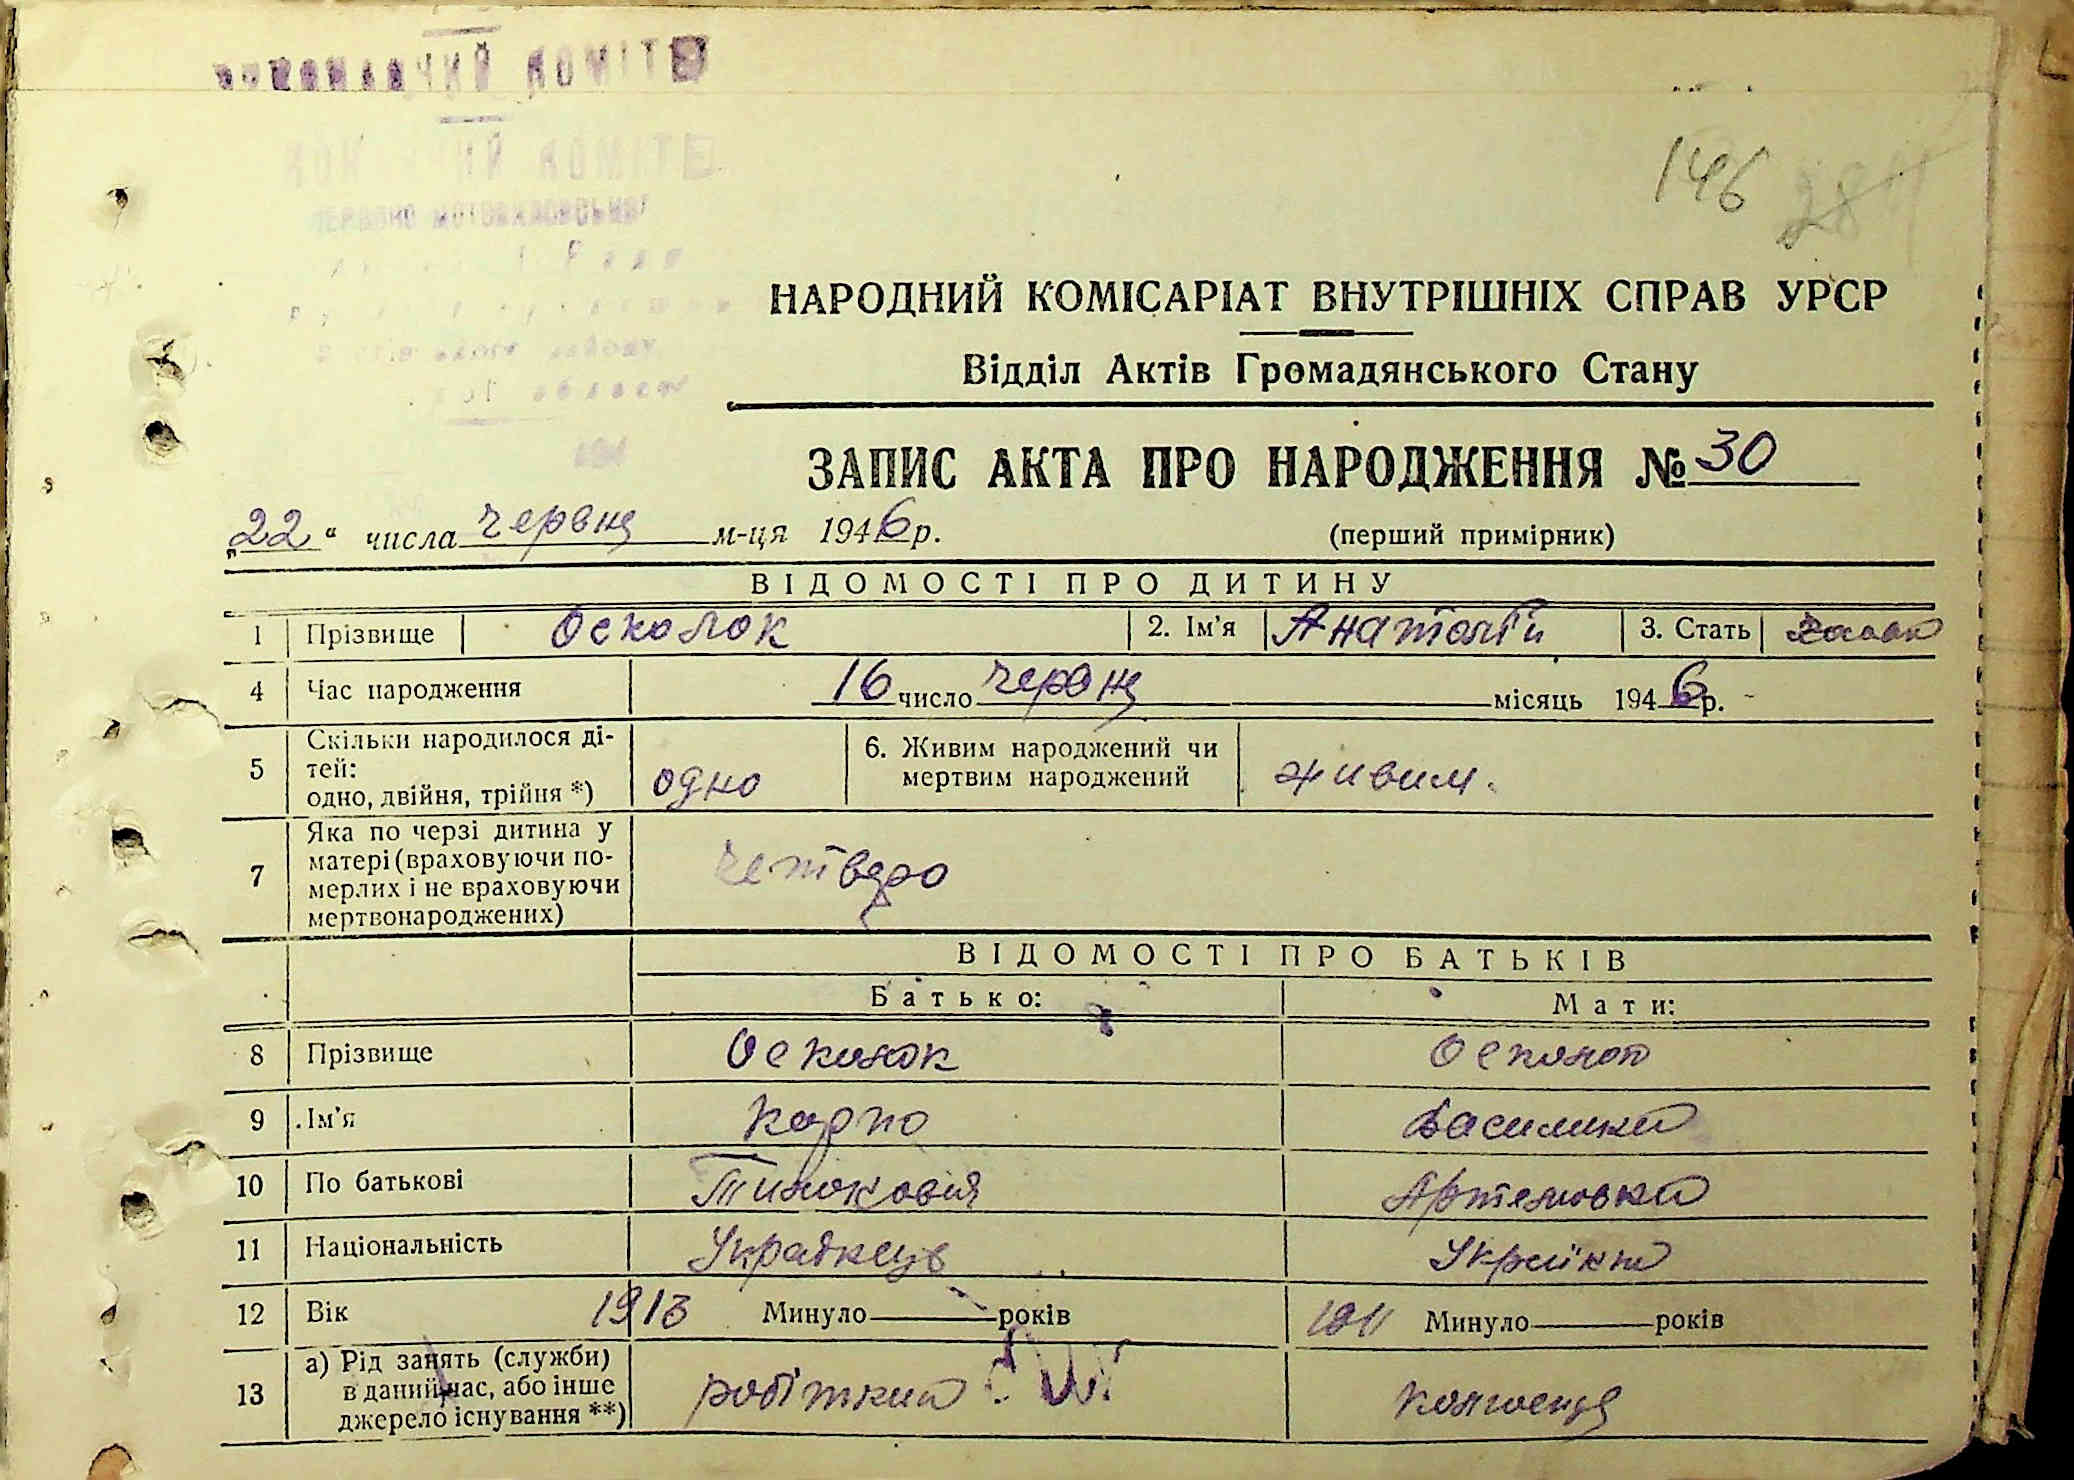 146
НАРОДНИЙ КОМІСАРІАТ ВНУТРІШНІХ СПРАВ УРСР
Відділ Актів Громадянського Стану
ЗАПИС АКТА ПРО НАРОДЖЕННЯ № 30
„22“ числа червня м-ця 1946 р. (перший примірник)
ВІДОМОСТІ ПРО ДИТИНУ
1 Прізвище Осколок 2. Ім'я Анатолій 3. Стать
4 Час народження 16 число червня місяць 1946 р.
5 Скільки народилося ді-
тей:
одно, двійня, трійня *) одно 6. Живим народжений чи
мертвим народжений живим.
7 Яка по черзі дитина у
матері (враховуючи по-
мерлих і не враховуючи
мертвонароджених) четверо
ВІДОМОСТІ ПРО БАТЬКІВ
Батько: Мати:
8 Прізвище Осколок Осколок
9 Ім'я Карпо Василина
10 По батькові Артемовна
11 Національність Українець Українка
12 Вік 1913 Минуло років 1911 Минуло років
13 а) Рід занять (служби)
в даний час, або інше
джерело існування **) робітник колгоспця